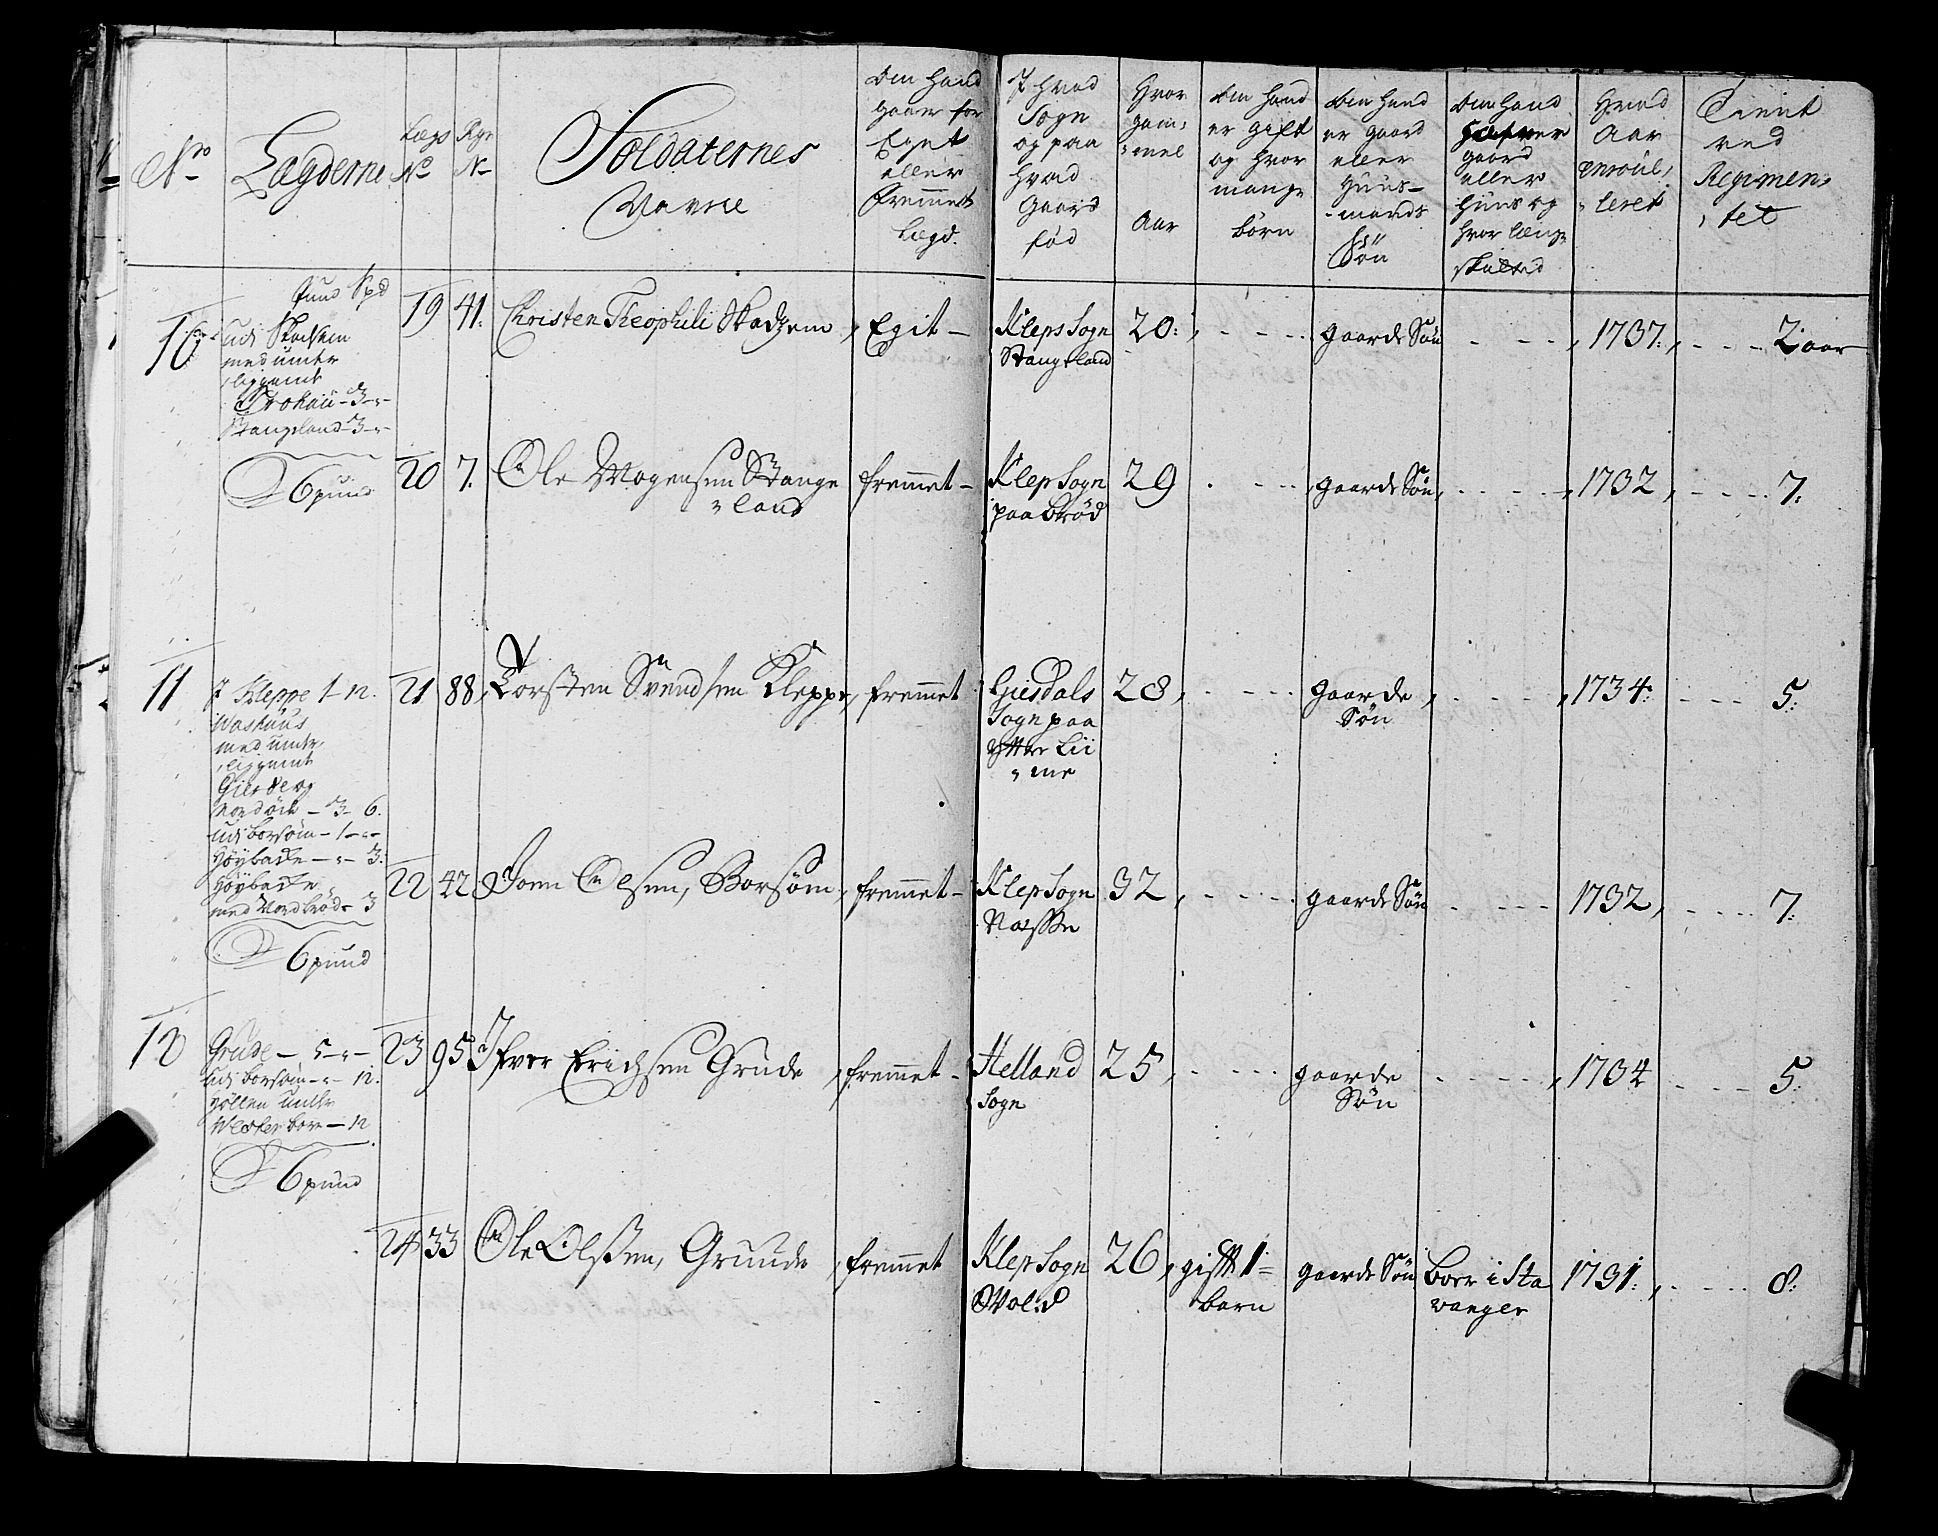 No
Lægderne
Lægs
No
Rge
N-
Soldaternes
Navne
Om hand
gaaer for
Eget
eller
fremmet
Lægd.
I hvad
Sogn
og paa
hvad
Gaard
fød
Hvor
gam,
,mel
Aar
Om hand
er gift
og hvor
mange
børn
Om hand
er gaard
eller
Huus-
-mands
Søn
Om hand
gaard
eller
huus og
hvor længe
Hvad
Aar
enroul,
,leret
Tient
ved
Regimen,
,tet
10
Pund Spd
udi Skadsem
med under
,liggende
Stangeland - 3 - " -
6 pund
19 41. Christen Theophili Skadzem, Egit -
Kleps Sogn
Stangeland
20. gaarde Søn 1737. 2 aar
20 7. Ole Mogensen Stange
"land
fremmet -
Klep Sogn
paa Brød
29 gaarde Søn 1732, 7.
11
I Kleppe 1 - 12.
med under
,liggende
- 3 - 6.
udi Borsøm - 1 - " -
Høybacke - " - 3.
Høybacke
med Nordbrød - 3
6 pund
21 88, Torsten Svendsen Kleppe, fremmet
Giesdals
Sogn paa
Yttre Lii
"me
28, gaarde
Søn
1734. 5.
22 42 Joen Olsen, Borsøm, fremmet -
Klep Sogn
32, gaarde Søn 1732, 7.
12
Grude - 5 - " -
udi Borsøm - " - 12.
under
- 12
6 pund
23 95 Ifver Erichsen Grude, fremmet -
Helland
Sogn
25, gaarde
Søn
1734 5.
24 33 Ole Olsen, Gruude, fremmet
Klep Sogn
26, gift 1
barn
gaarde Søn
Boer i Sta
vanger
1731., 8.